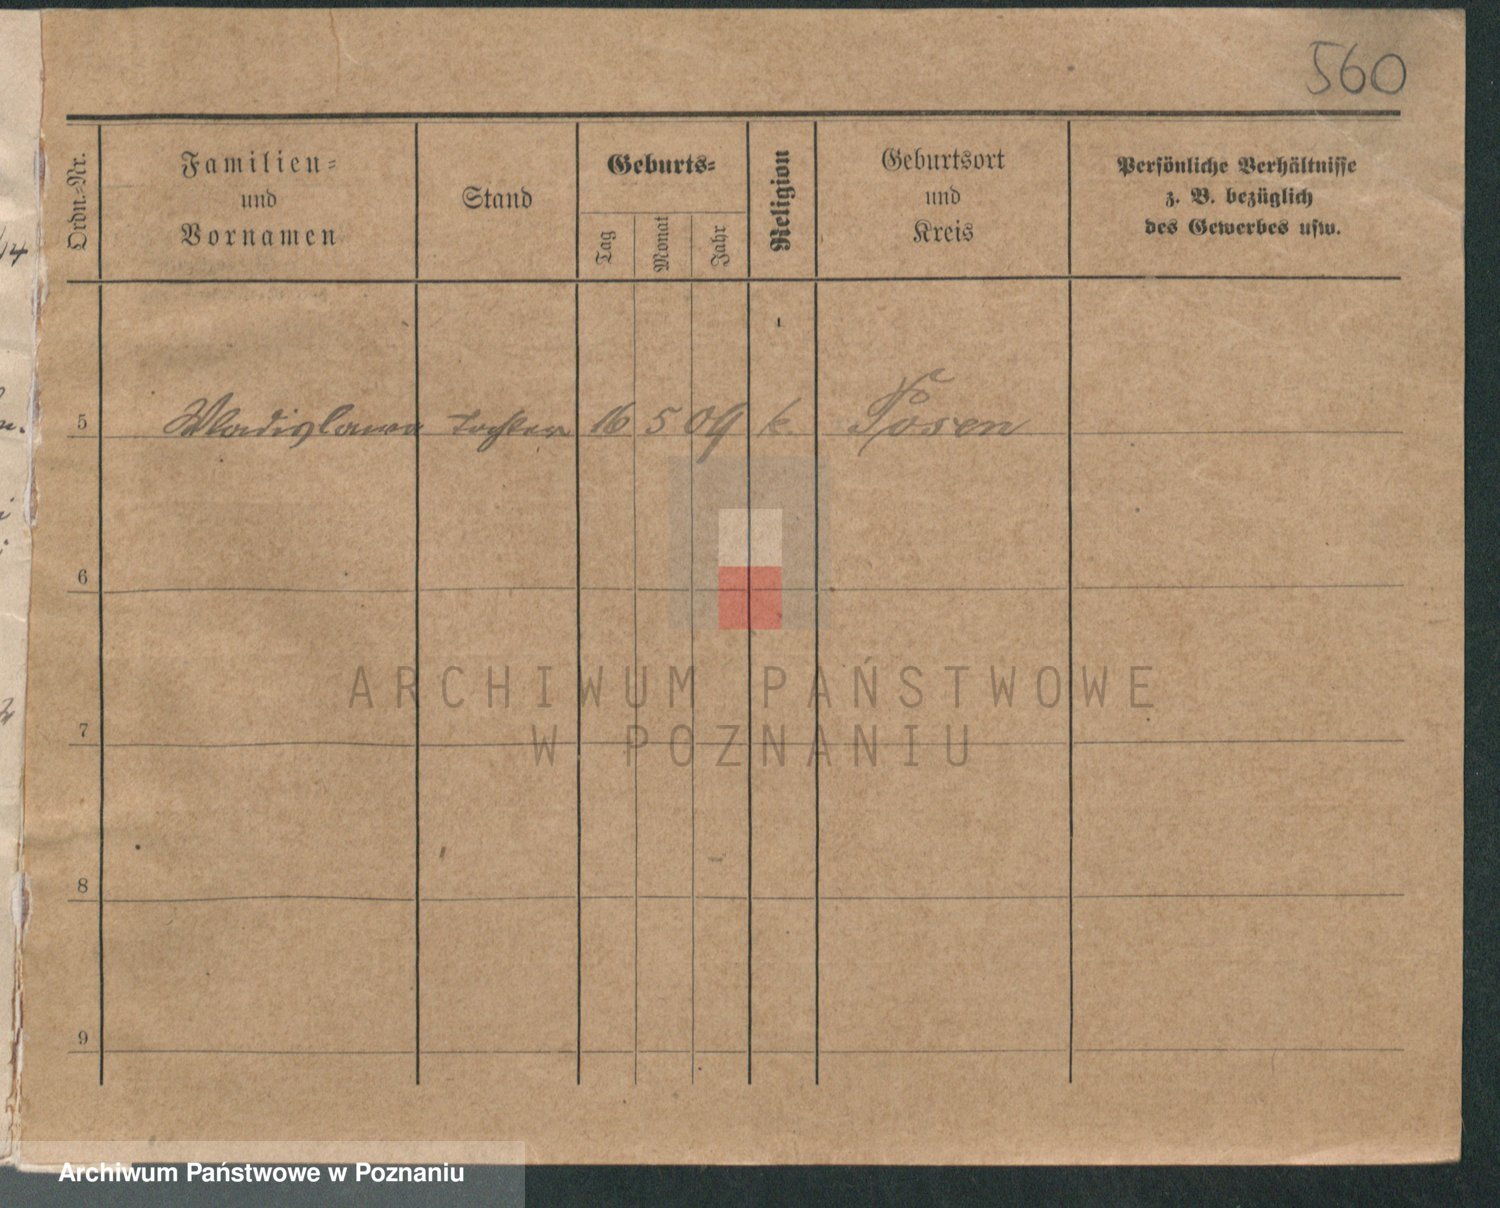 560
Ordn.-Nr.
Familien-
und
Vornamen
Stand
Geburts-
Tag
Monat
Jahr
Religion
Geburtsort
und
Kreis
Persönliche Verhältnisse
z. B. bezüglich
des Gewerbes usw.
5 Wladislawa Tochter 16 5 09 k. Posen
6
7
8
9
ARCHIWUM PAŃSTWOWE
W POZNANIU
Archiwum Państwowe w Poznaniu